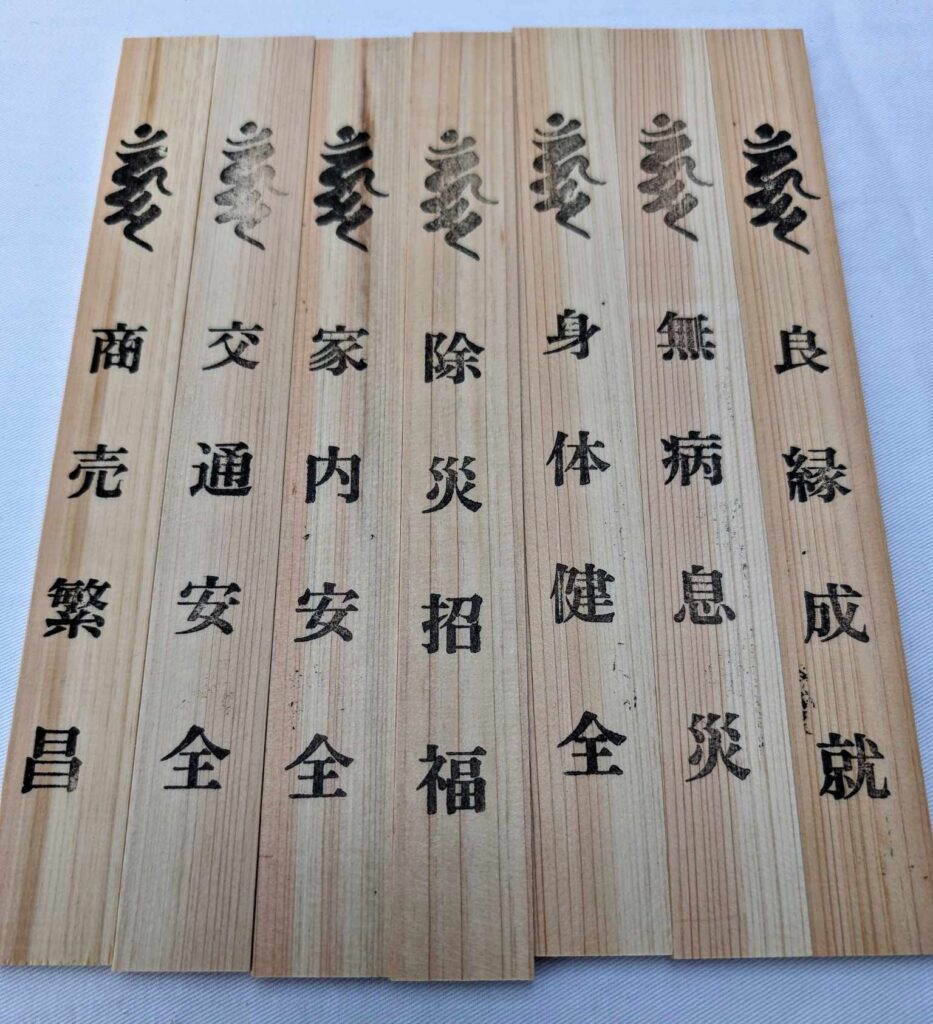 良縁成就
無病息災
身体健全
除災招福
家内安全
交通安全
商売繁昌